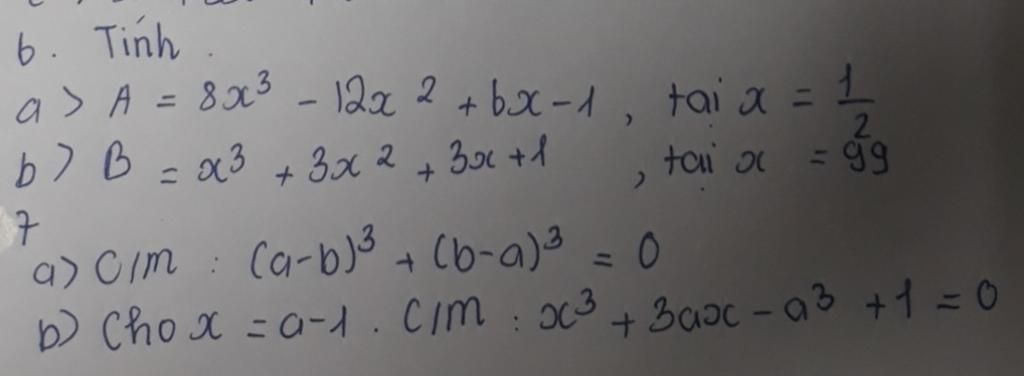 6. Tính.
a> A = 8x³ - 12x² + 6x - 1, tại x = 1/2
b> B = x³ + 3x² + 3x + 1, tại x = 99
7
a) C/m : (a-b)³ + (b-a)³ = 0
b) Cho x = a-1. C/m : x³ + 3ax - a³ + 1 = 0